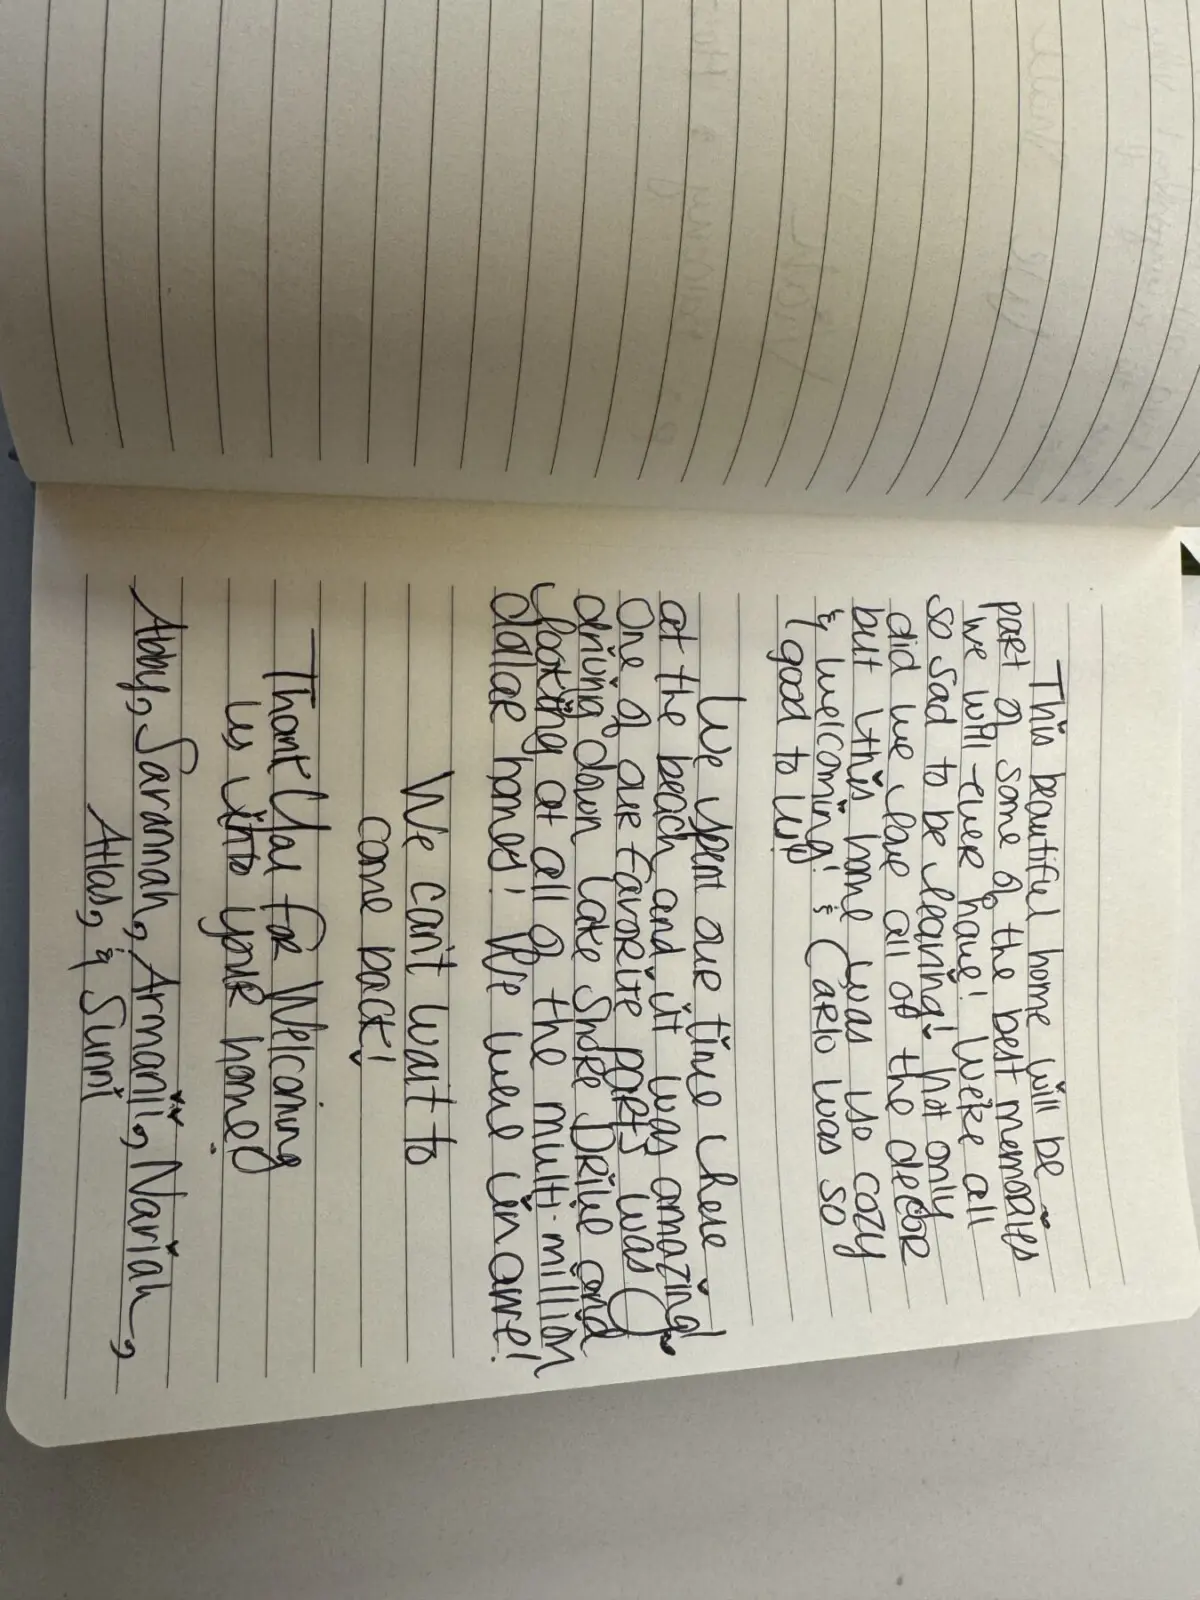 This beautiful home will be
part of some of the best memories
we will ever have! We're all
so sad to be leaving! not only
did we love all of the decor
but this home was so cozy
& welcoming! & Carlo was so
good to us!
We spent our time here
at the beach and it was amazing!
One of our favorite parts was
driving down Lake Shore Drive and
looking at all of the multi-million
dollar homes! We were in awe!
We can't wait to
come back!
Thank You for Welcoming
us into your home!
Abby, Savannah, Armanii, Nariah,
Atlas, & Sunni